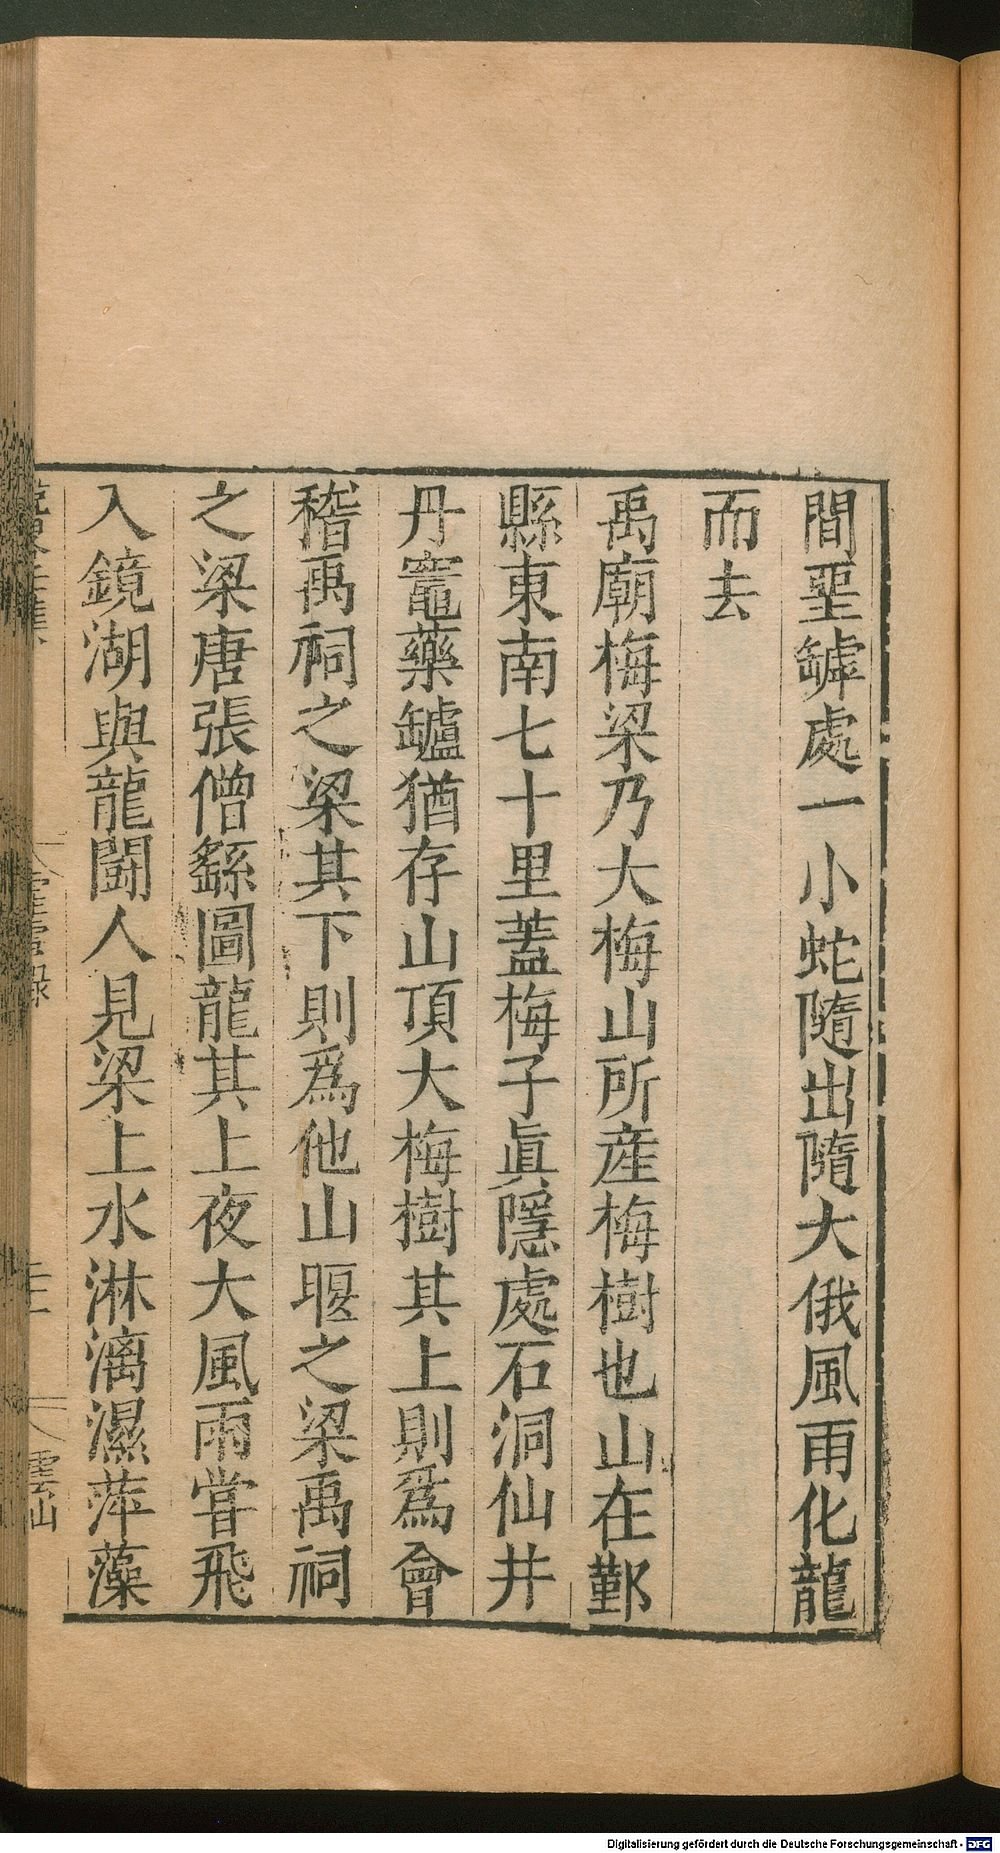 間堊罅處一小蛇隨出隨大俄風雨化龍
而去
禹廟梅梁乃大梅山所産梅樹也山在鄞
縣東南七十里蓋梅子眞隱處石洞仙井
丹竈藥罏猶存山頂大梅樹其上則爲會
稽禹祠之梁其下則爲他山堰之梁禹祠
之梁唐張僧繇圖龍其上夜大風雨甞飛
入鏡湖與龍鬪人見梁上水淋漓濕萍藻
雲山
Digitalisierung gefördert durch die Deutsche Forschungsgemeinschaft - DFG